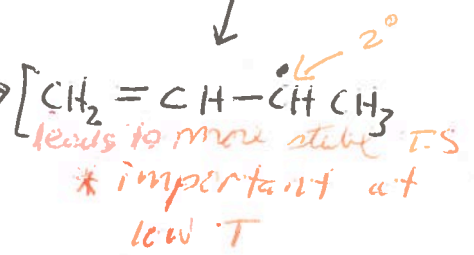 2°
[CH₂ = CH – ĊH CH₃
leads to more stable T.S
* important at
low T